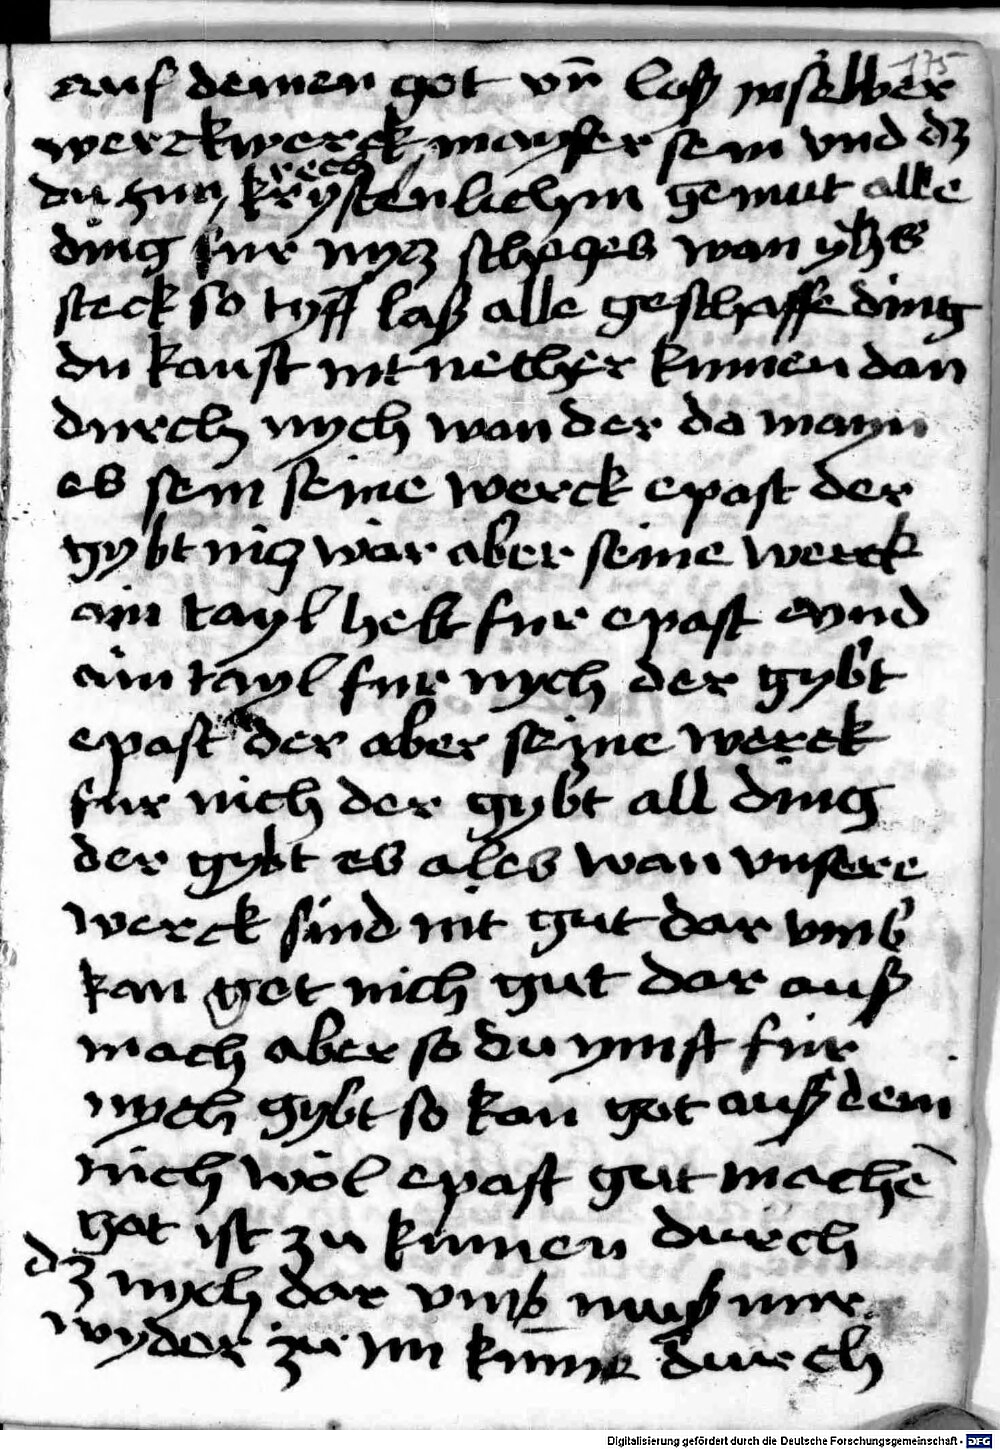 175
auf deinen got vn̄ laß in selber
werckwerck mayster sein vnd dz
du zun rech krystenlichm gemut alle
ding fur nycz scheczes wan
steck so tyff laß alle geschaffe ding
du kanst nit necher kumen dan
durch nych wan der da maynn
es sein seine werck epast der
gybt nicz war aber seine werck
ain tayl helt fur epast vnd
ain tayl fur nych der gybt
epast der aber seine werck
fur nich der gybt all ding
der gybt es ales wan vnsere
werck sind nit gut dar vmb
kan got nich gut dar auß
mach aber so du ymst fur
nych gybt so kan got auß dem
nich wol epast gut machē
got ist zu kumen durch
dz nych dar vmb muß mir
wyder zu im kume durch
Digitalisierung gefördert durch die Deutsche Forschungsgemeinschaft - DFG